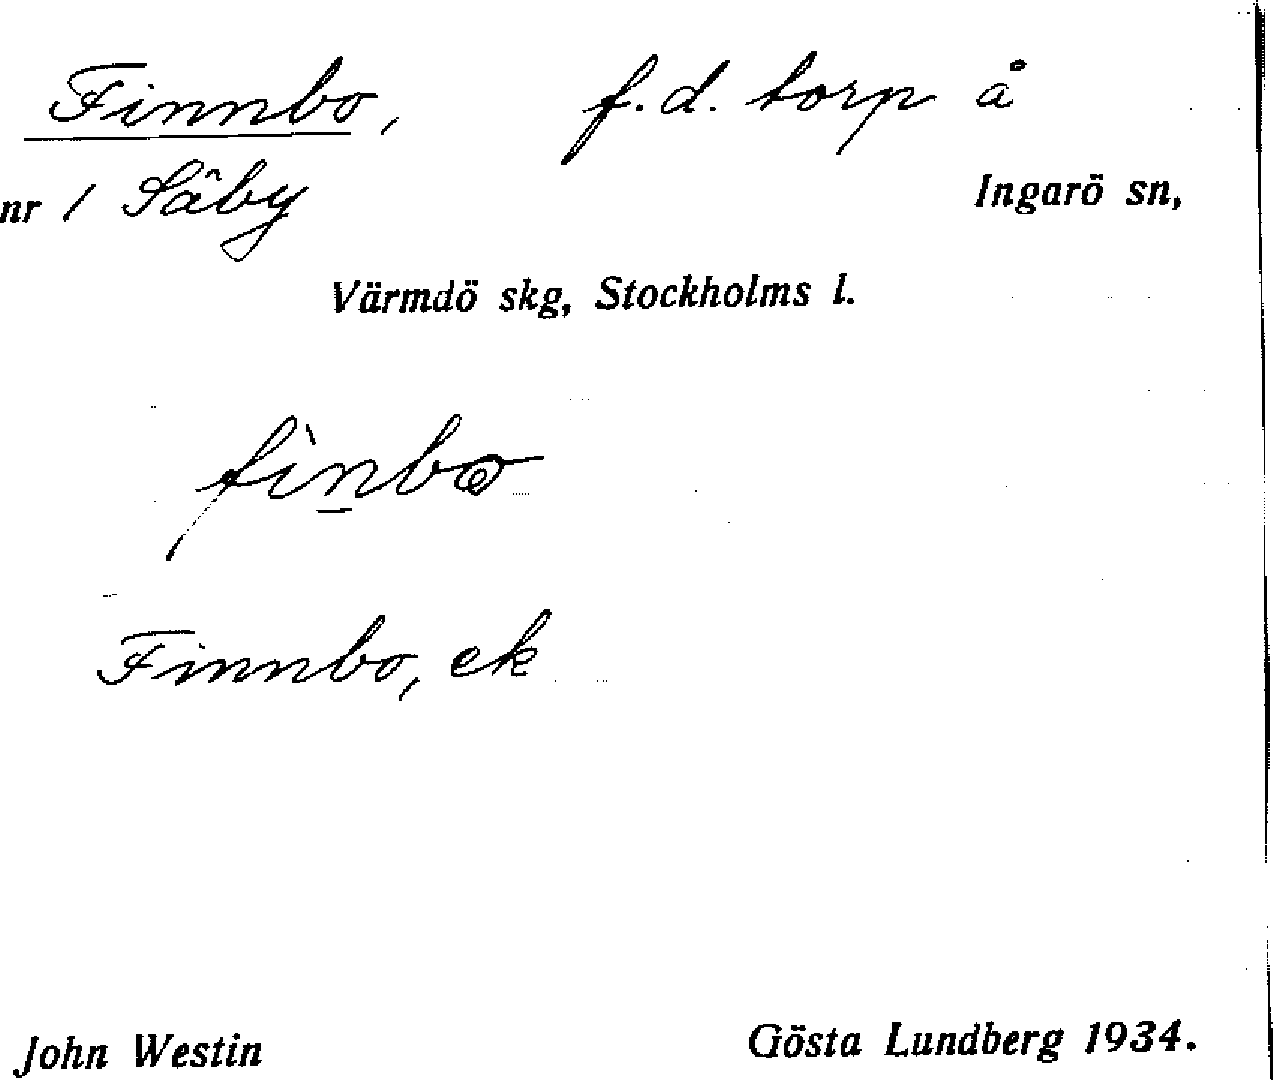 Finnbo, f.d. torp å
nr 1 Säby Ingarö sn,
Värmdö skg, Stockholms l.
fìn̲bo
Finnbo, ek
John Westin Gösta Lundberg 1934.